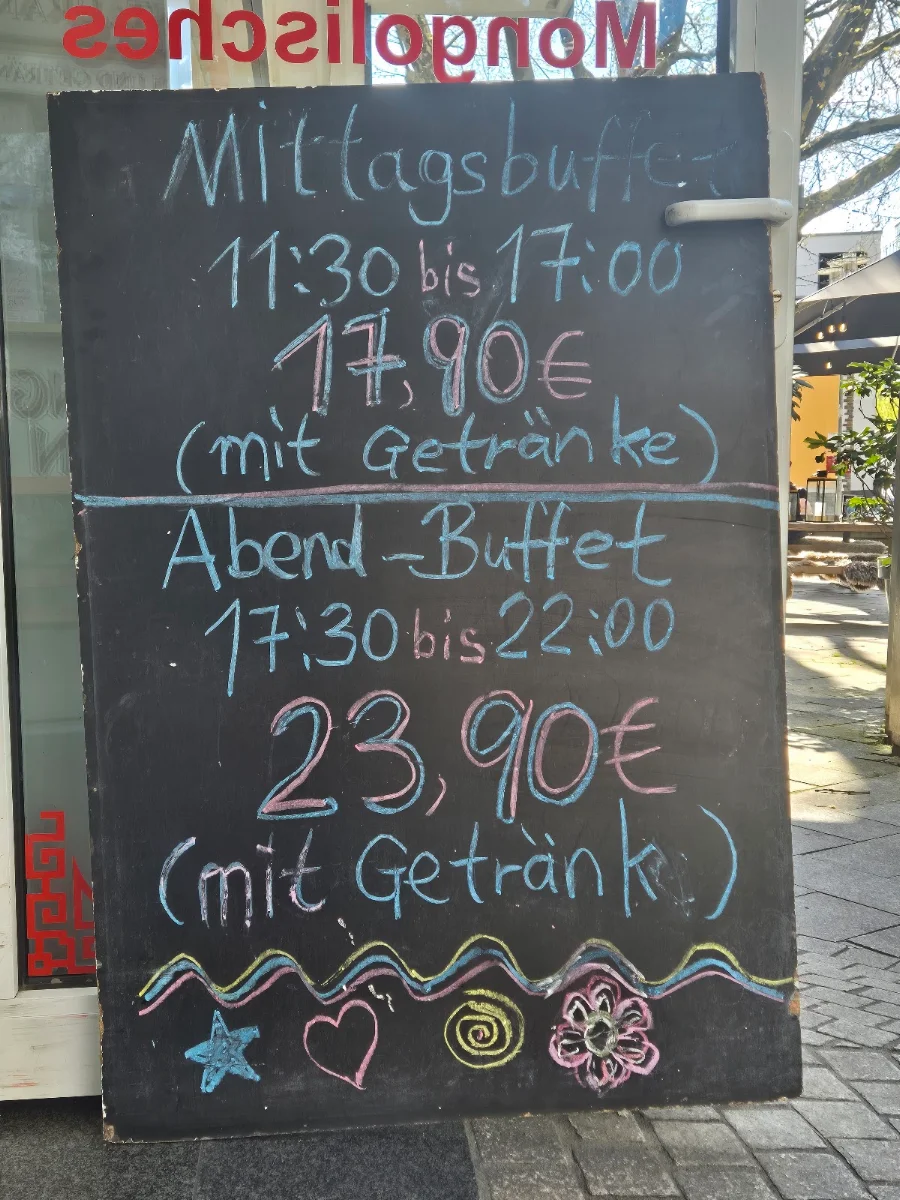 Mongolisches
Mittagsbuffet
11:30 bis 17:00
17,90€
(mit Getränke)
Abend-Buffet
17:30 bis 22:00
23,90€
(mit Getränk )